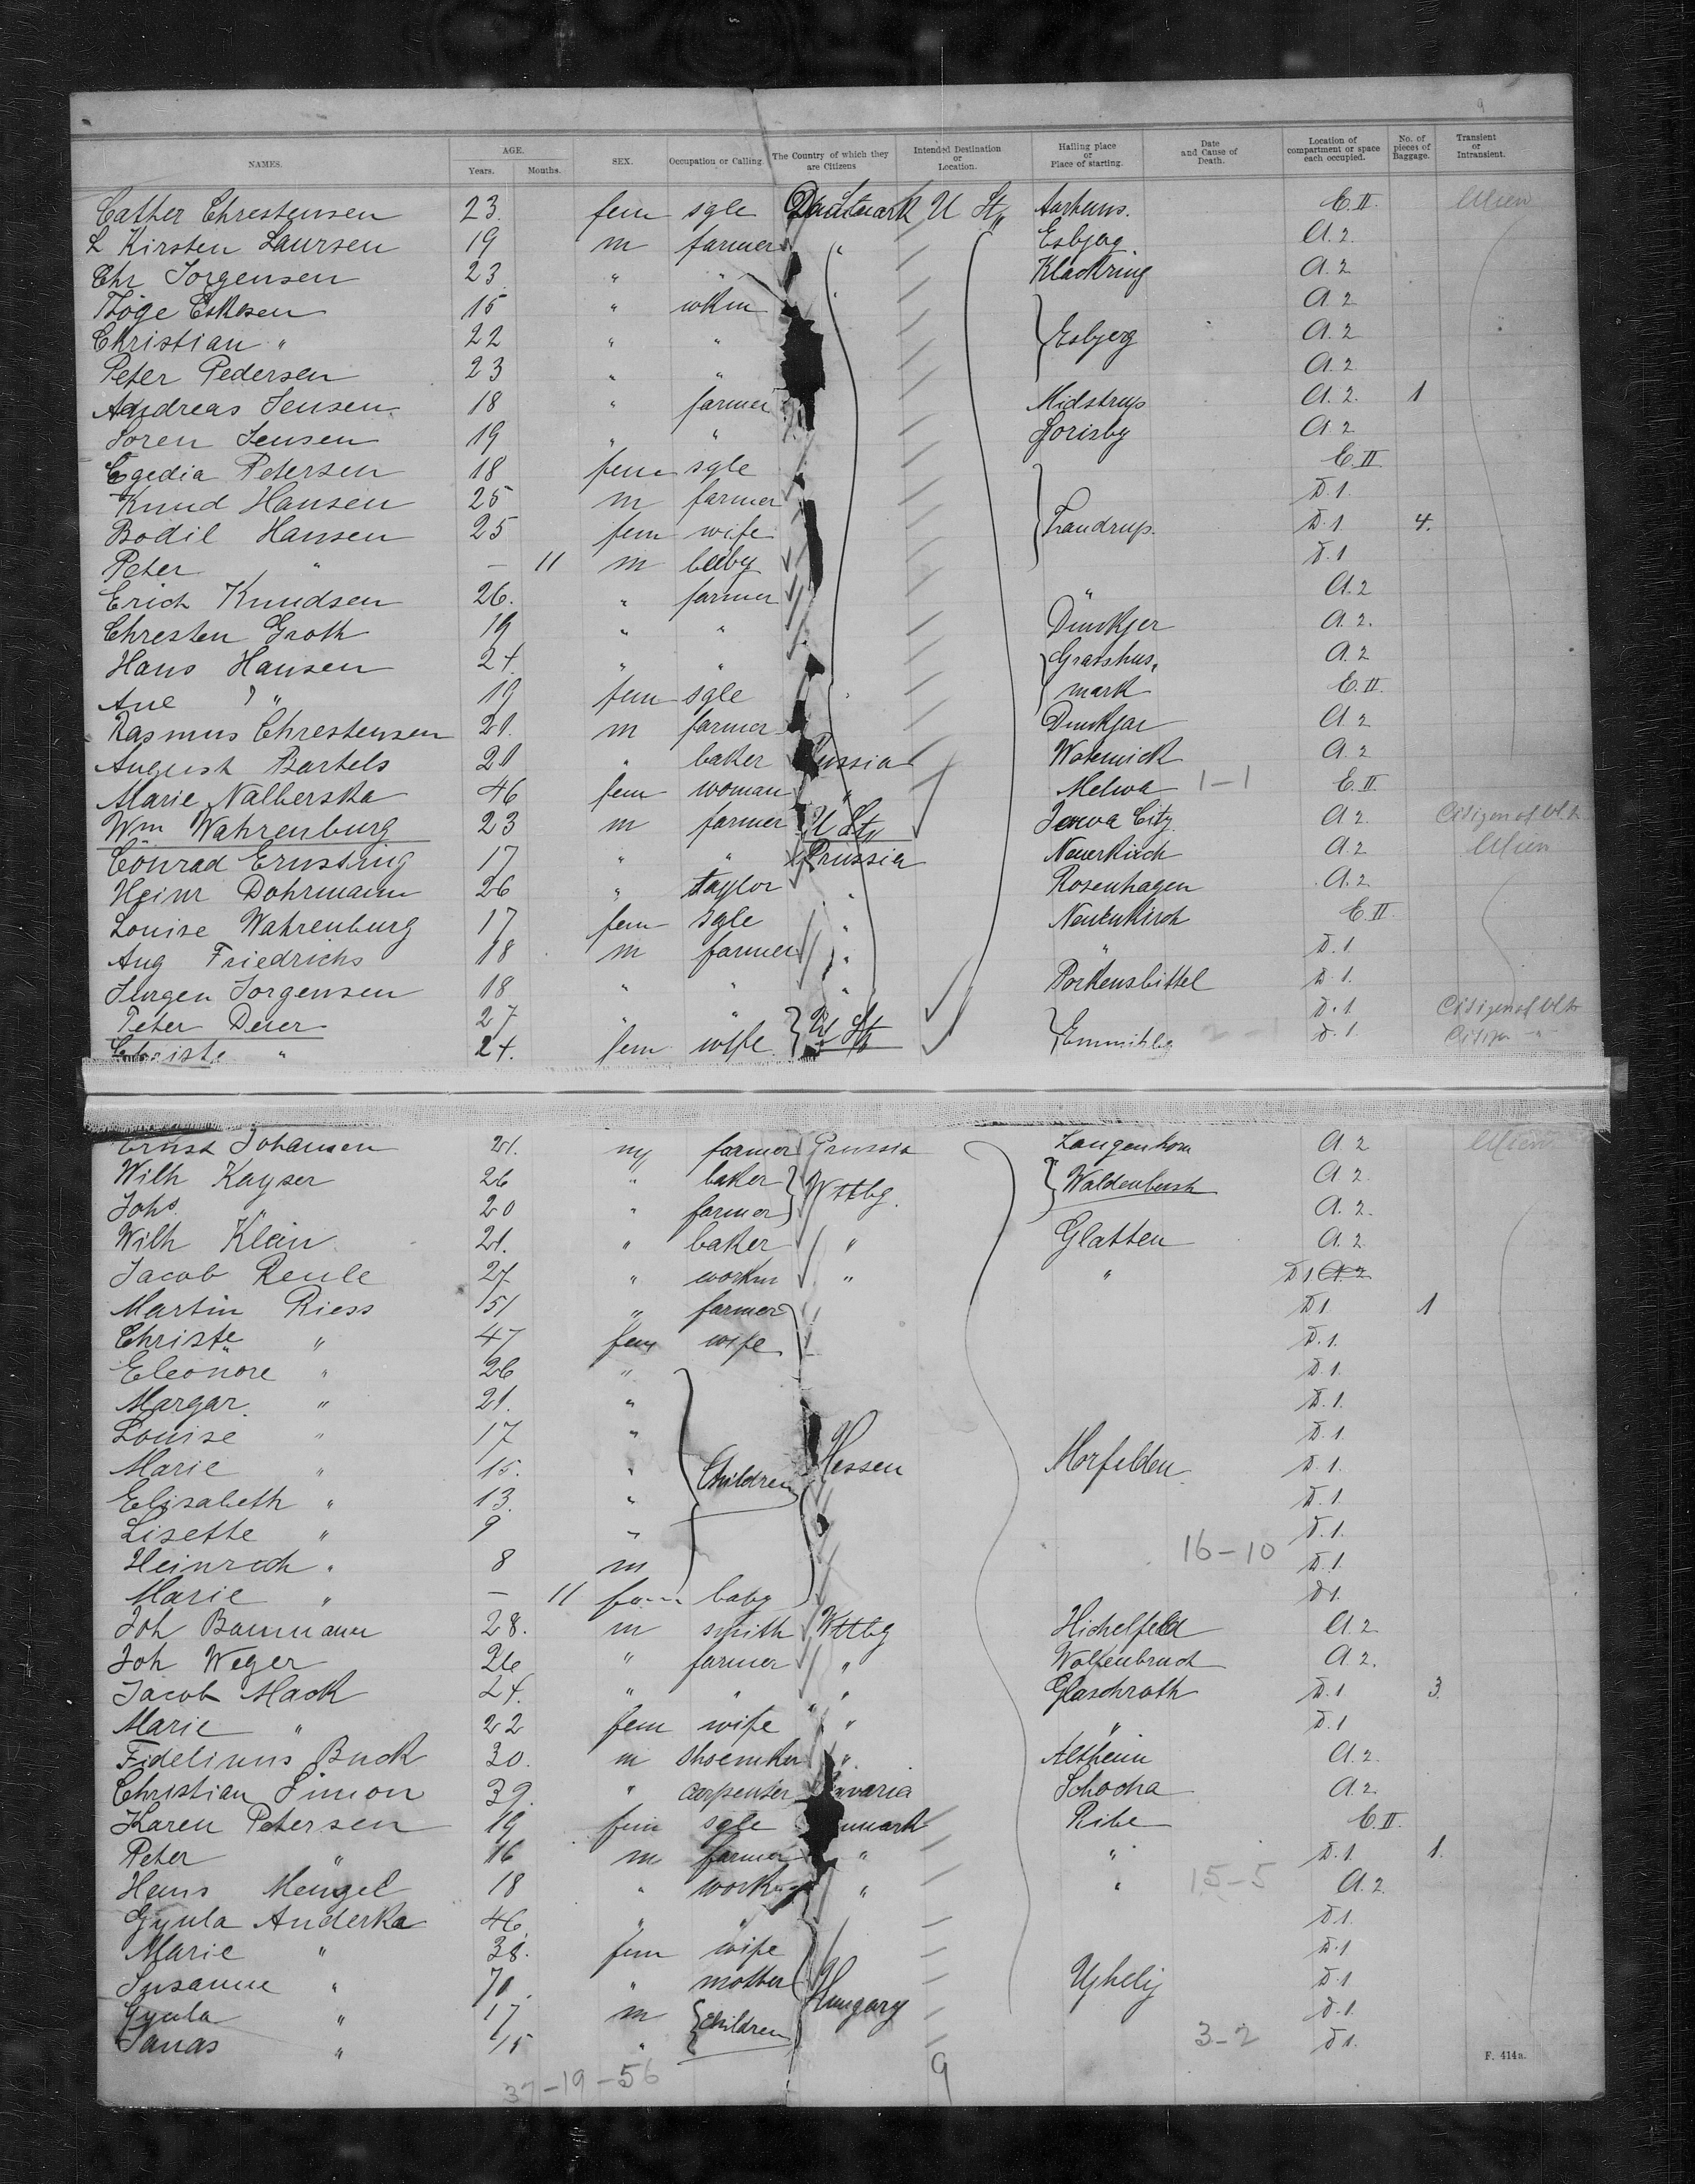 9
NAMES. AGE. Years. Months. SEX. Occupation or Calling. The Country of which they are Citizens Intended Destination or Location. Hailing place or Place of starting. Date and Cause of Death. Location of compartment or space each occupied. No. of pieces of Baggage. Transient or Intransient.
Cather Chrestensen 23. fem sgle U St, Aarhuus. E. II. Alien
L Kirsten Laursen 19 m farmer " Esbjerg A. 2.
Chr Jorgensen 23 " " Klackring A. 2
Eskesen 15 " wkm A 2
Christian " 22 " " Esbjerg A 2
Peter Pedersen 23 " " A. 2
Andreas Jensen 18 " farmer Midstrup A. 2. 1
Soren Jensen 19 " " A 2
Egedia Petersen 18 fem sgle E. II
Knud Hansen 25 m farmer D. 1.
Bodil Hansen 25 fem wife D. 1 4.
Peter " — 11 m D. 1
Erich Knudsen 26. " farmer " A. 2
Chresten Groth 19 " " A. 2.
Hans Hansen 24. " " A. 2
Ane " 19 fem sgle mark E. II.
Rasmus Chrestensen 21. m farmer A 2
August Bartels 21 " baker A. 2
Marie Nalberska 46 fem woman " Melwa 1-1 E. II
Wm Wahrenburg 23 m farmer U St, Jowa City A 2 Citizen of U St
Conrad Ernsting 17 " " Prussia A 2 Alien
Heinr Dohrmann 26 " taylor " Rosenhagen A. 2
Louise Wahrenburg 17 fem sgle " Neuenkirch E II.
Aug Friedrichs 18 m farmer " " D. 1
Jurgen Jorgensen 18 " " " D. 1.
Peter Deier 27 " " U St D. 1 Citizen of U St
Christe " 24. fem wife D. 1 Citizen "
Ernst Johannsen 21. m farmer Prussia Langenhorn A 2 Alien
Wilh Kayser 26 " baker Wttbg. Waldenbush A 2
Johs. " 20 " farmer A. 2.
Wilh Klein 21. " baker " Glatten A. 2
Jacob Reule 27 " workm " " D 1 A. 2
Martin Riess 51 " farmer D 1 1
Christe " 47 fem wife D. 1.
Eleonore " 26 " D. 1.
Margar. " 21. " D. 1.
Louise " 17 " D. 1.
Marie " 15. " Children Hessen Morfelden D. 1.
Elisabeth " 13. " D. 1.
Lisette " 9 " D. 1.
Heinrich " 8 m 16-10 D. 1.
Marie " — 11 fem baby D 1.
Joh 28. m smith Wttbg A. 2
Joh Weger 26 " farmer " A. 2.
Jacob Mack 24. " " " Glaschroth D. 1 3
Marie " 22 fem wife " " D. 1
Fidelinus Buck 30. m shoemker " Altheim A. 2.
Christian Simon 39. " carpenter Bavaria A 2
Karen Petersen 19 fem sgle Ribe E. II.
Peter " 16 m farmer " " D. 1 1.
Hans Mengel 18 " " " 15-5 A. 2
Gyula Anderka 46. " " D 1.
Marie " 38. fem wife D. 1
Susanne " 70. " mother Hungary Ujhelij D. 1
Gyula " 17 m children D. 1.
Janas " 15 " 3-2 D 1.
37-19-56 9 F. 414a.